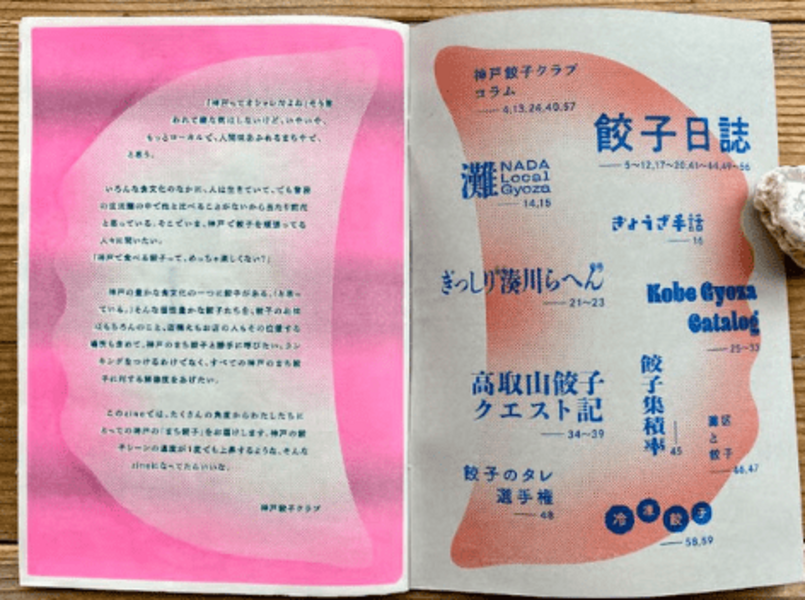 「神戸ってオシャレだよね」そう言
われて嫌な気はしないけど、いやいや、
もっとローカルで、人間味あふれるまちやで、
と思う。
いろんな食文化のなかに、人は生きていて、でも普段
の生活圏の中で他と比べることがないから当たり前だ
と思っている。そこでいま、神戸で餃子を頑張ってる
人々に聞いたい。
「神戸で食べる餃子って、めっちゃ楽しくない？」
神戸の豊かな食文化の一つに餃子がある。（と思っ
ている。）そんな個性豊かな餃子たちを、餃子のお味
はもちろんのこと、店構えもお店の人もその位置する
場所も含めて、神戸のまち餃子と勝手に呼びたい。ラン
キングをつけるわけでなく、すべての神戸のまち餃
子に対する解像度をあげたい。
このzineでは、たくさんの角度からわたしたちに
とっての神戸の「まち餃子」をお届けします。神戸の餃
子シーンの温度が1度でも上昇するような、そんな
zineになってたらいいな。
神戸餃子クラブ
神戸餃子クラブ
コラム
4,13,24,40,57
餃子日誌
5〜12,17〜20,41〜44,49〜56
灘 NADA
Local
Gyoza
14,15
ぎょうざ手話
16
ぎっしり湊川らへん
21〜23
Kobe Gyoza
Catalog
25〜33
高取山餃子
クエスト記
34〜39
餃子集積率
45
灘区
と
餃子
46,47
餃子のタレ
選手権
48
冷凍餃子
58,59